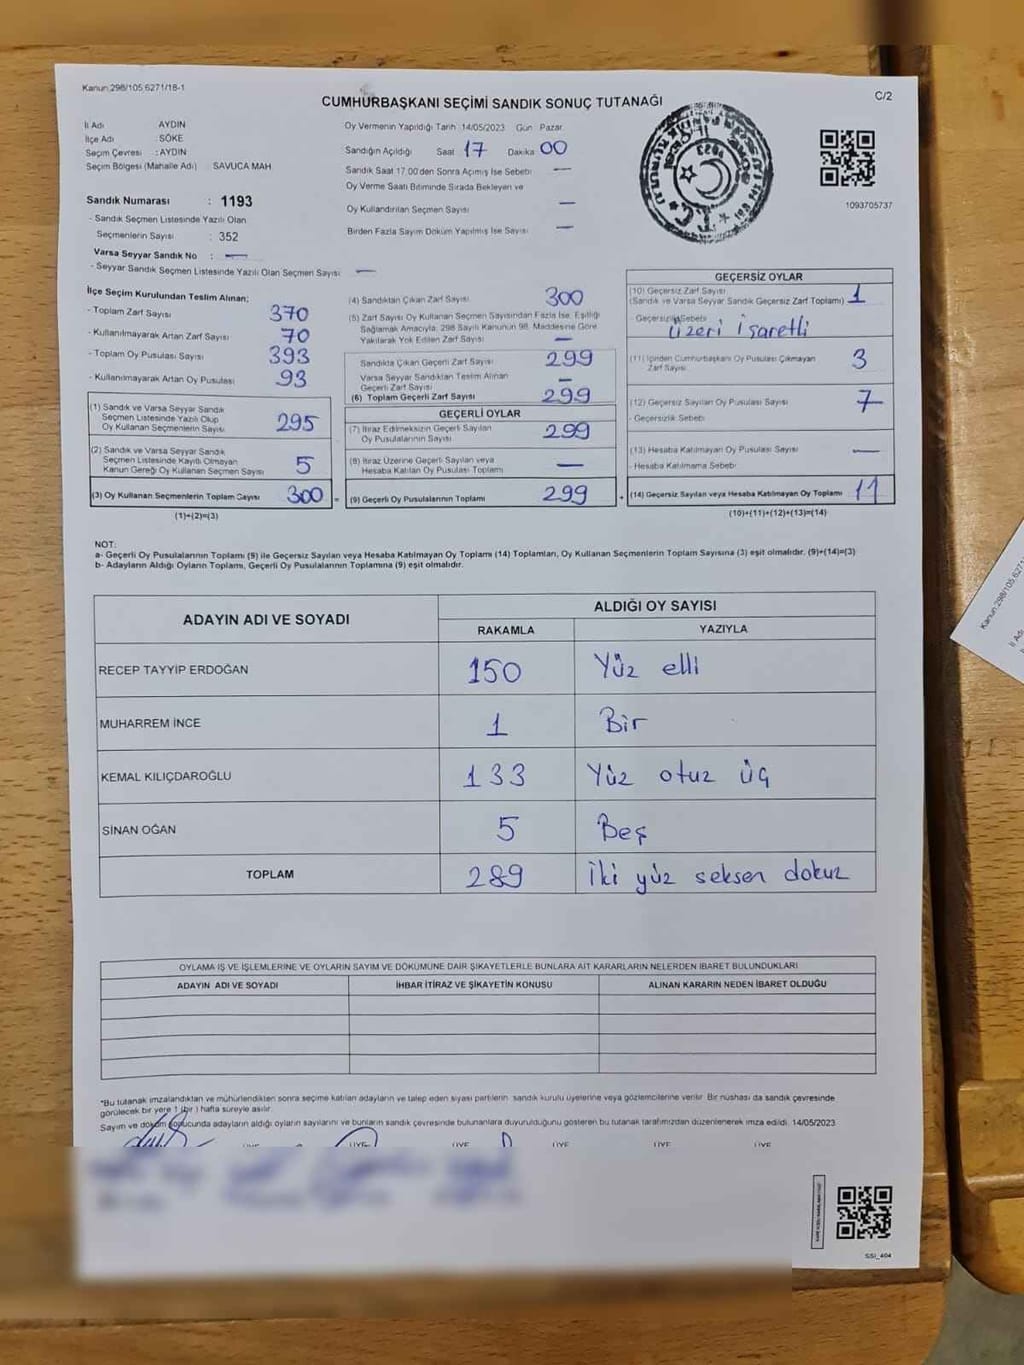 Kanun:298/105,6271/18-1
C/2
CUMHURBAŞKANI SEÇİMİ SANDIK SONUÇ TUTANAĞI
İl Adı AYDIN
İlçe Adı : SÖKE
Seçim Çevresi : AYDIN
Seçim Bölgesi (Mahalle Adı) : SAVUCA MAH
Sandık Numarası : 1193
- Sandık Seçmen Listesinde Yazılı Olan
Seçmenlerin Sayısı : 352
Varsa Seyyar Sandık No : —
- Seyyar Sandık Seçmen Listesinde Yazılı Olan Seçmen Sayısı —
Oy Vermenin Yapıldığı Tarih 14/05/2023 Gün Pazar
Sandığın Açıldığı Saat 17 Dakika 00
Sandık Saat 17.00'den Sonra Açımış İse Sebebi —
Oy Verme Saati Bitiminde Sırada Bekleyen ve
Oy Kullandırılan Seçmen Sayısı —
Birden Fazla Sayım Döküm Yapılmış İse Sayısı —
T.C.
1093705737
İlçe Seçim Kurulundan Teslim Alınan;
- Toplam Zarf Sayısı 370
- Kullanılmayarak Artan Zarf Sayısı 70
- Toplam Oy Pusulası Sayısı 393
- Kullanılmayarak Artan Oy Pusulası 93
(1) Sandık ve Varsa Seyyar Sandık
Seçmen Listesinde Yazılı Olup
Oy Kullanan Seçmenlerin Sayısı 295
(2) Sandık ve Varsa Seyyar Sandık
Seçmen Listesinde Kayıtlı Olmayan
Kanun Gereği Oy Kullanan Seçmen Sayısı 5
(3) Oy Kullanan Seçmenlerin Toplam Sayısı 300 =
(1)+(2)=(3)
(4) Sandıktan Çıkan Zarf Sayısı 300
(5) Zarf Sayısı Oy Kullanan Seçmen Sayısından Fazla İse, Eşitliği
Sağlamak Amacıyla, 298 Sayılı Kanunun 98. Maddesine Göre
Yakılarak Yok Edilen Zarf Sayısı —
Sandıkta Çıkan Geçerli Zarf Sayısı 299
Varsa Seyyar Sandıktan Teslim Alınan
Geçerli Zarf Sayısı —
(6) Toplam Geçerli Zarf Sayısı 299
GEÇERLİ OYLAR
(7) İtiraz Edilmeksizin Geçerli Sayılan
Oy Pusulalarının Sayısı 299
(8) İtiraz Üzerine Geçerli Sayılan veya
Hesaba Katılan Oy Pusulası Toplamı —
(9) Geçerli Oy Pusulalarının Toplamı 299 +
GEÇERSİZ OYLAR
(10) Geçersiz Zarf Sayısı
(Sandık ve Varsa Seyyar Sandık Geçersiz Zarf Toplamı) 1
- Geçersizlik Sebebi
Üzeri İşaretli
(11) İçinden Cumhurbaşkanı Oy Pusulası Çıkmayan
Zarf Sayısı 3
(12) Geçersiz Sayılan Oy Pusulası Sayısı 7
- Geçersizlik Sebebi
(13) Hesaba Katılmayan Oy Pusulası Sayısı —
- Hesaba Katılmama Sebebi
(14) Geçersiz Sayılan veya Hesaba Katılmayan Oy Toplamı 11
(10)+(11)+(12)+(13)=(14)
NOT:
a- Geçerli Oy Pusulalarının Toplamı (9) ile Geçersiz Sayılan veya Hesaba Katılmayan Oy Toplamı (14) Toplamları, Oy Kullanan Seçmenlerin Toplam Sayısına (3) eşit olmalıdır. (9)+(14)=(3)
b- Adayların Aldığı Oyların Toplamı, Geçerli Oy Pusulalarının Toplamına (9) eşit olmalıdır.
ADAYIN ADI VE SOYADI
ALDIĞI OY SAYISI
RAKAMLA YAZIYLA
RECEP TAYYİP ERDOĞAN 150 Yüz elli
MUHARREM İNCE 1 Bir
KEMAL KILIÇDAROĞLU 133 Yüz otuz üç
SİNAN OĞAN 5 Beş
TOPLAM 289 İki yüz seksen dokuz
OYLAMA İŞ VE İŞLEMLERİNE VE OYLARIN SAYIM VE DÖKÜMÜNE DAİR ŞİKAYETLERLE BUNLARA AİT KARARLARIN NELERDEN İBARET BULUNDUKLARI
ADAYIN ADI VE SOYADI İHBAR İTİRAZ VE ŞİKAYETİN KONUSU ALINAN KARARIN NEDEN İBARET OLDUĞU
*Bu tutanak imzalandıktan ve mühürlendikten sonra seçime katılan adayların ve talep eden siyasi partilerin sandık kurulu üyelerine veya gözlemcilerine verilir. Bir nüshası da sandık çevresinde
görülecek bir yere 1 (bir) hafta süreyle asılır.
Sayım ve döküm sonucunda adayların aldığı oyların sayılarını ve bunların sandık çevresinde bulunanlara duyurulduğunu gösteren bu tutanak tarafımızdan düzenlenerek imza edildi. 14/05/2023
ÜYE ÜYE ÜYE ÜYE ÜYE
SSI_404
Kanun:298/105,6271
İl Adı